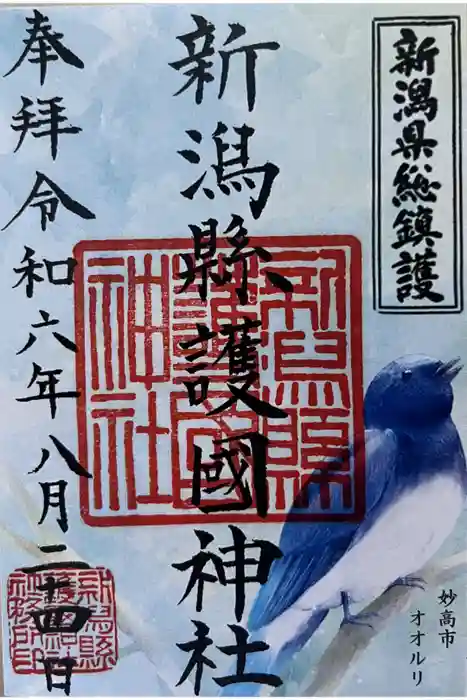 新潟県総鎮護
新潟縣護國神社
奉拝令和六年八月二十四日
新潟縣
護國
神社
新潟縣
護國神社
社務所印
妙高市
オオルリ